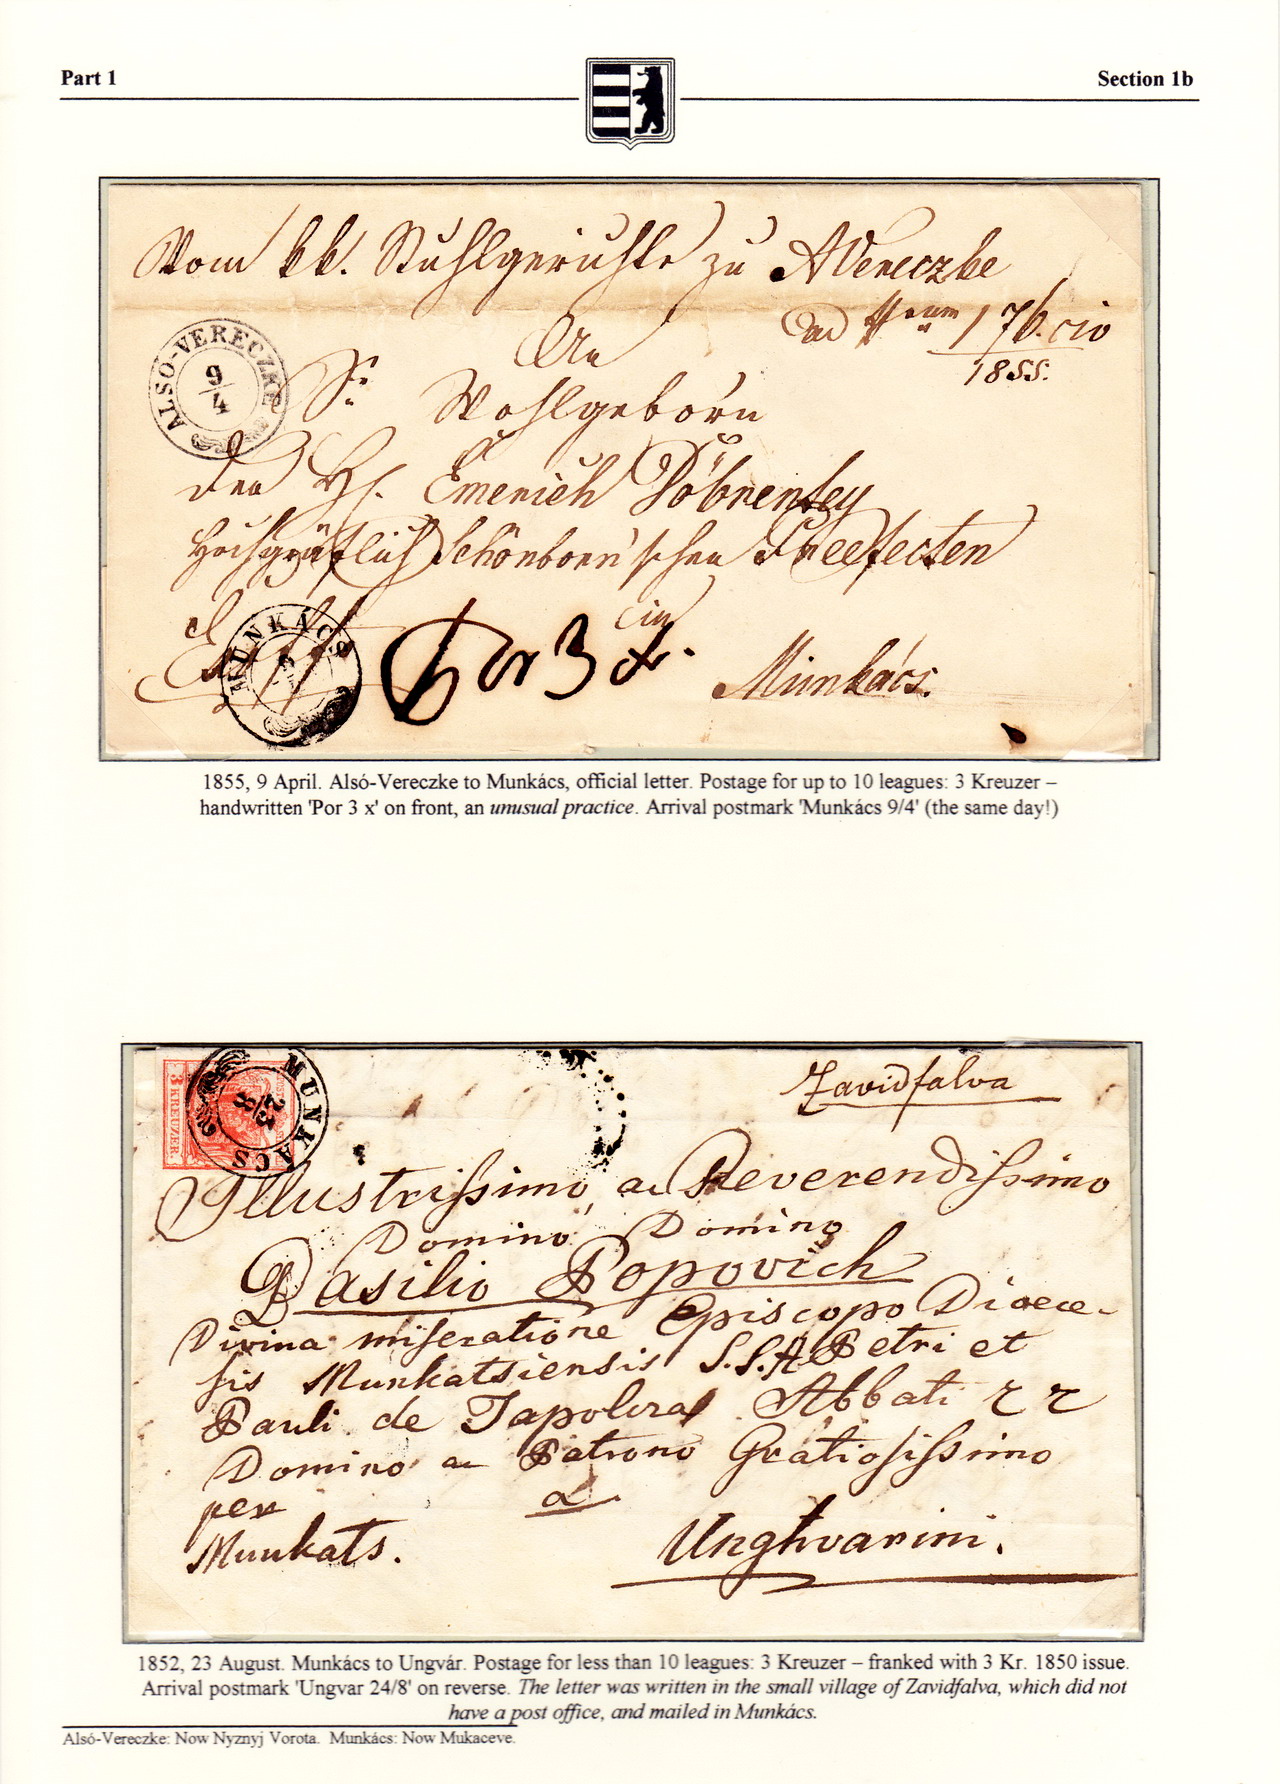 Part 1
Section 1b
Vom kk. Stuhlgerichte zu AVereczke
ad 176. cio
1855.
ALSÓ-VERECZKE
9/4
An
Sr Wohlgeborn
den H. Emerich Döbrentey
Hochgräflich Schönborn'schen Preefecten
MUNKÁCS
in
Por 3 x.
Munkács.
1855, 9 April. Alsó-Vereczke to Munkács, official letter. Postage for up to 10 leagues: 3 Kreuzer –
handwritten 'Por 3 x' on front, an unusual practice. Arrival postmark 'Munkács 9/4' (the same day!)
3 KREUZER.
MUNKÁCS
23/8
Zavidfalva
Illustrissimo, ac Reverendissimo
Domino, Domino
Basilio Popovich
Divina miseratione Episcopo Dioece-
sis Munkatsiensis S.S.A. Petri et
Pauli de Tapolcza Abbati
Domino ac Patrono Gratiosissimo
per
a
Munkats.
Unghvarini.
1852, 23 August. Munkács to Ungvár. Postage for less than 10 leagues: 3 Kreuzer – franked with 3 Kr. 1850 issue.
Arrival postmark 'Ungvar 24/8' on reverse. The letter was written in the small village of Zavidfalva, which did not
have a post office, and mailed in Munkács.
Alsó-Vereczke: Now Nyznyj Vorota. Munkács: Now Mukaceve.